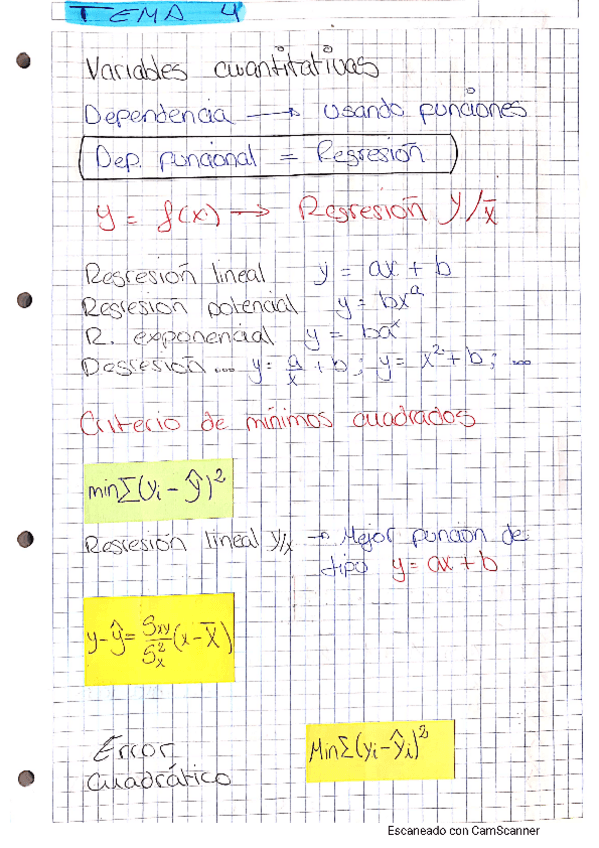 TEMA 4
Variables cuantitativas
Dependencia → usando funciones
Dep. funcional = Regresión
y = f(x) → Regresión y/x̄
Regresión lineal y = ax + b
Regresión potencial y = bxᵃ
R. exponencial y = baˣ
Degresión... y = a/x + b; y = x² + b; ...
Criterio de mínimos cuadrados
min∑(yᵢ - ŷ)²
Regresión lineal y/x → Mejor función de
tipo y = ax + b
y - ŷ = Sxy/S²x (x - x̄)
Error Min∑(yᵢ - ŷᵢ)²
Cuadrático
Escaneado con CamScanner